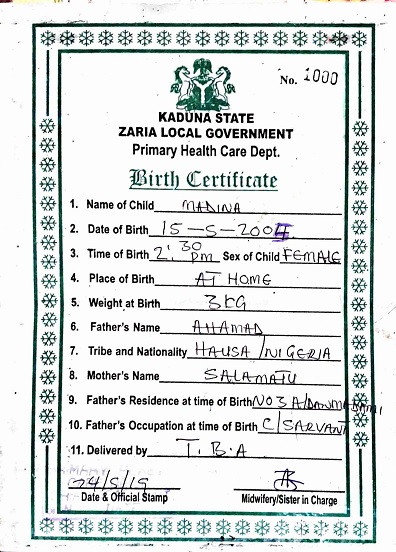 No. 1000
KADUNA STATE
ZARIA LOCAL GOVERNMENT
Primary Health Care Dept.
Birth Certificate
1. Name of Child MADINA
2. Date of Birth 15-5-2004
3. Time of Birth 2:30 pm Sex of Child FEMALE
4. Place of Birth AT HOME
5. Weight at Birth 3KG
6. Father's Name AHAMAD
7. Tribe and Nationality HAUSA/NIGERIA
8. Mother's Name SALAMATU
9. Father's Residence at time of Birth NO 3 A/
10. Father's Occupation at time of Birth C/SARVANT
11. Delivered by T.B.A
24/5/19
Date & Official Stamp Midwifery/Sister in Charge